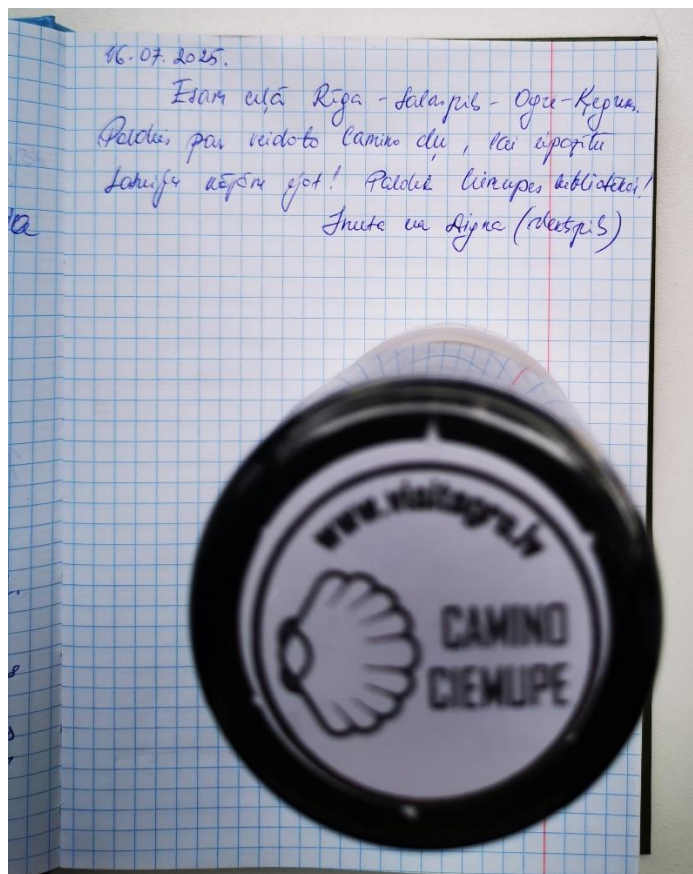 16.07.2025.
Esam ceļā Rīga - Salaspils - Ogre - Ķegums.
Paldies par veidoto Camino ceļu, lai iepazītu
Latviju kājām ejot! Paldies Ciemupes bibliotēkai!
Inuta un Aigna
www.visitogre.lv
CAMINO
CIEMUPE